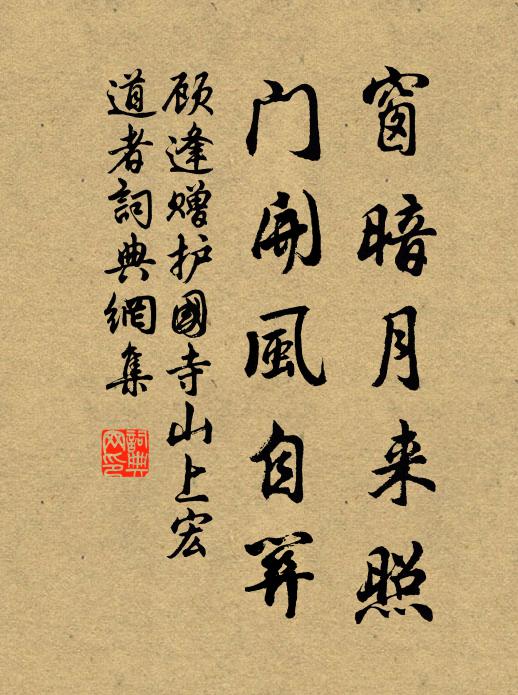 窗暗月来照
门開風自关
顾逢赠护國寺山上宏
道者詞典網集
詞典
网印